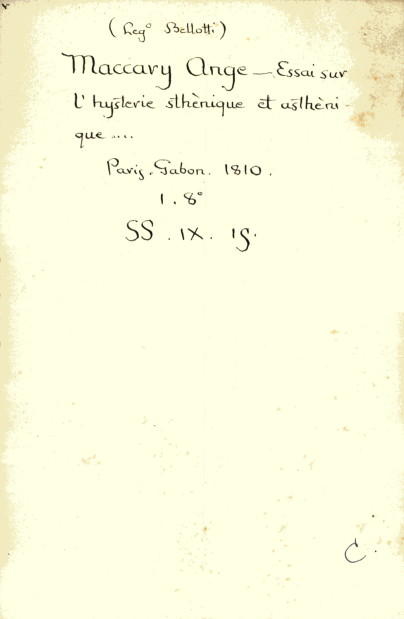 (Leg° Bellotti)
Maccary Ange — Essai sur
l'hysterie sthènique et asthèni-
que ....
Paris. Gabon. 1810.
1. 8°
SS. IX. 19.
C.